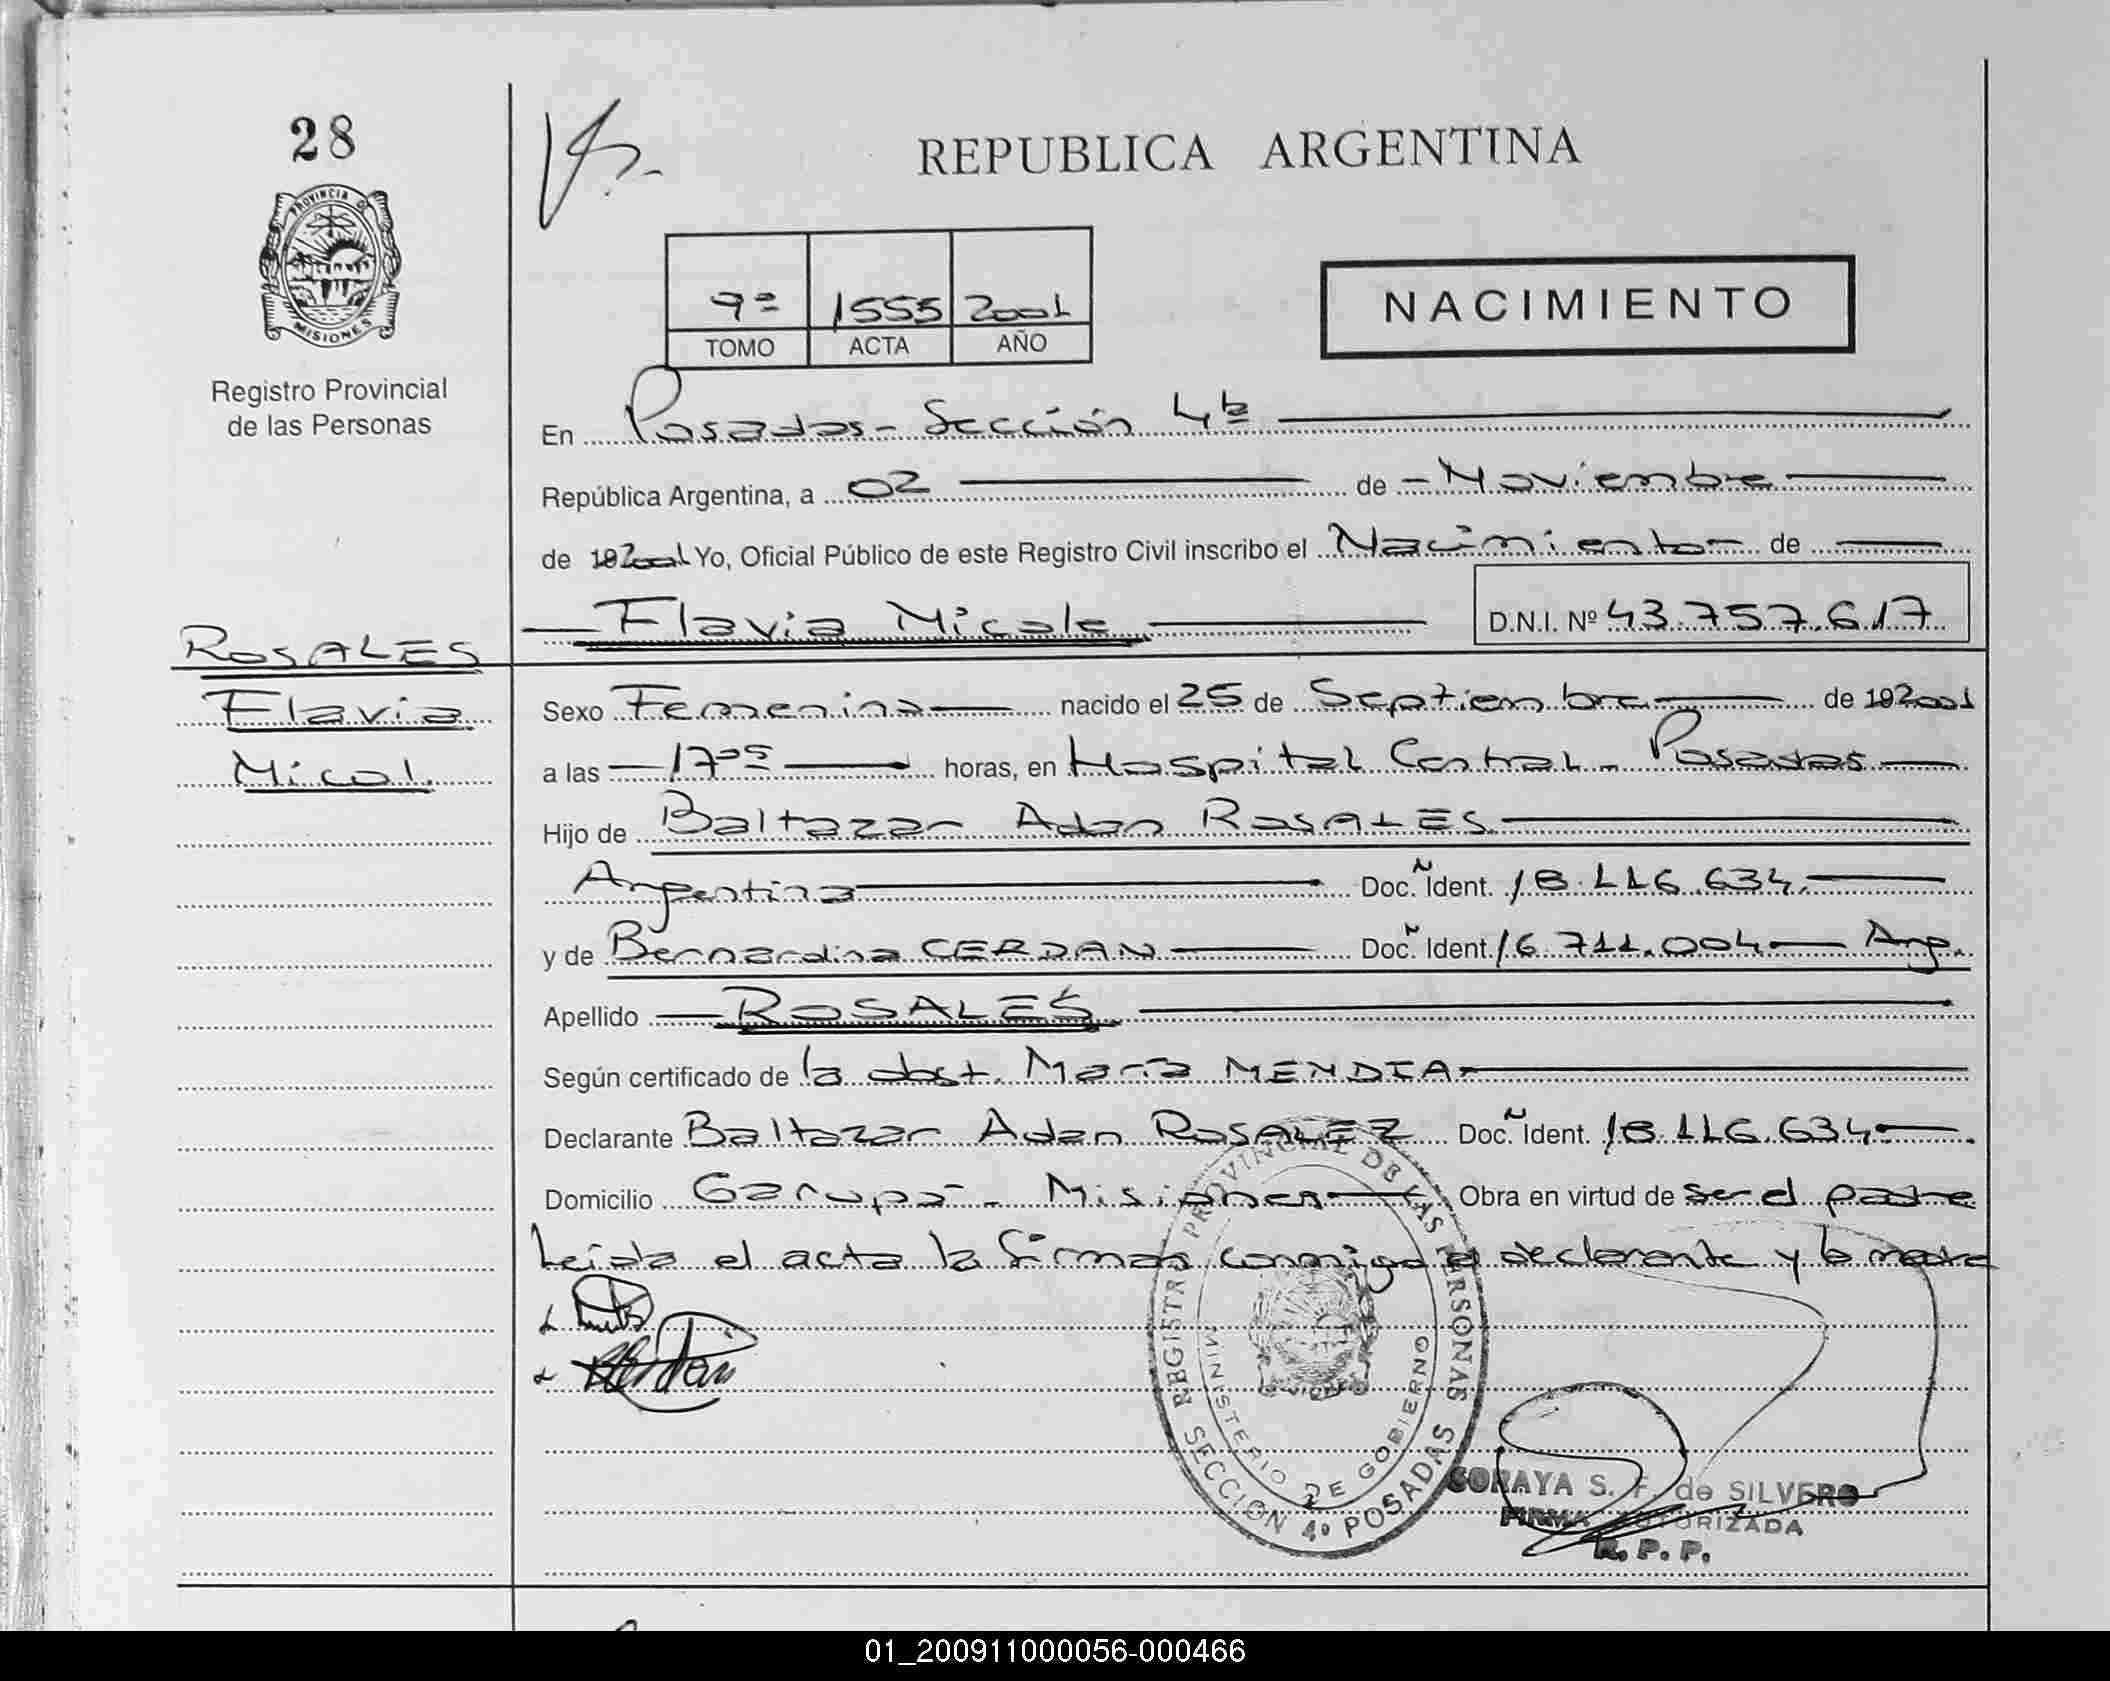 28
REPUBLICA ARGENTINA
PROVINCIA D
MISIONES
Registro Provincial
de las Personas
9ª 1555 2001
TOMO ACTA AÑO
NACIMIENTO
En Posadas - Sección 4ta
República Argentina, a 02 de Noviembre
de 192001 Yo, Oficial Público de este Registro Civil inscribo el Nacimiento de
Flavia Micole D.N.I. Nº 43.757.617
ROSALES
Flavia
Micol.
Sexo Femenino nacido el 25 de Septiembre de 192001
a las 17:05 horas, en Hospital Central - Posadas
Hijo de Baltazar Adan ROSALES
Argentina Doc. Ident. 18.116.634.
y de Bernardina CERDAN Doc. Ident. 16.711.004 Arg.
Apellido ROSALES
Según certificado de la obst. María MENDIA
Declarante Baltazar Adan ROSALEZ Doc. Ident. 18.116.634
Domicilio Garupá - Misiones Obra en virtud de ser el padre
Leida el acta la firman conmigo el declarante y la madre
REGISTRO PROVINCIAL DE LAS PERSONAS
MINISTERIO DE GOBIERNO
SECCION 4º POSADAS
SORAYA S. F. de SILVERO
FIRMA AUTORIZADA
R. P. P.
01_200911000056-000466